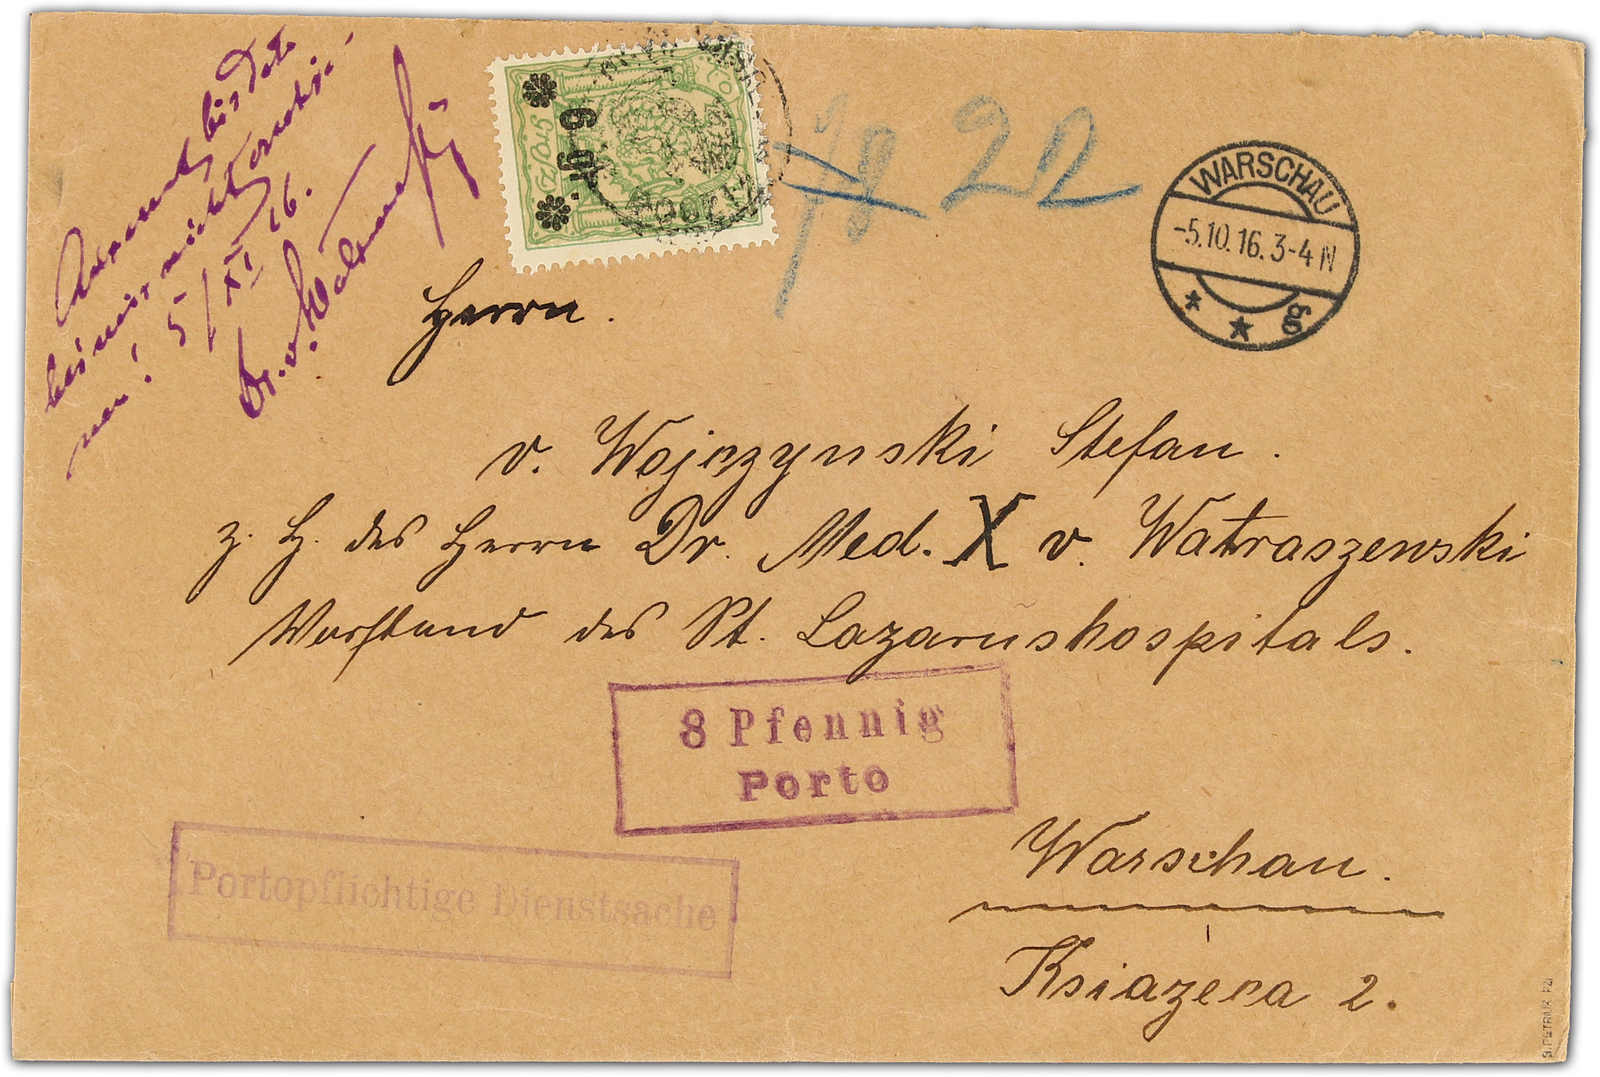 bis Dato
bei mir nicht
5/XI 16.
Dr. v.
6 gr.
GROSZY
8 22
WARSCHAU
-5.10.16.3-4 N
* * g
Herrn.
v. Wojczynski Stefan.
z. H. des Herrn Dr. Med. X v. Watraszewski
Vorstand des St. Lazarushospitals.
8 Pfennig
Porto
Portopflichtige Dienstsache
Warschau.
Ksiazeca 2.